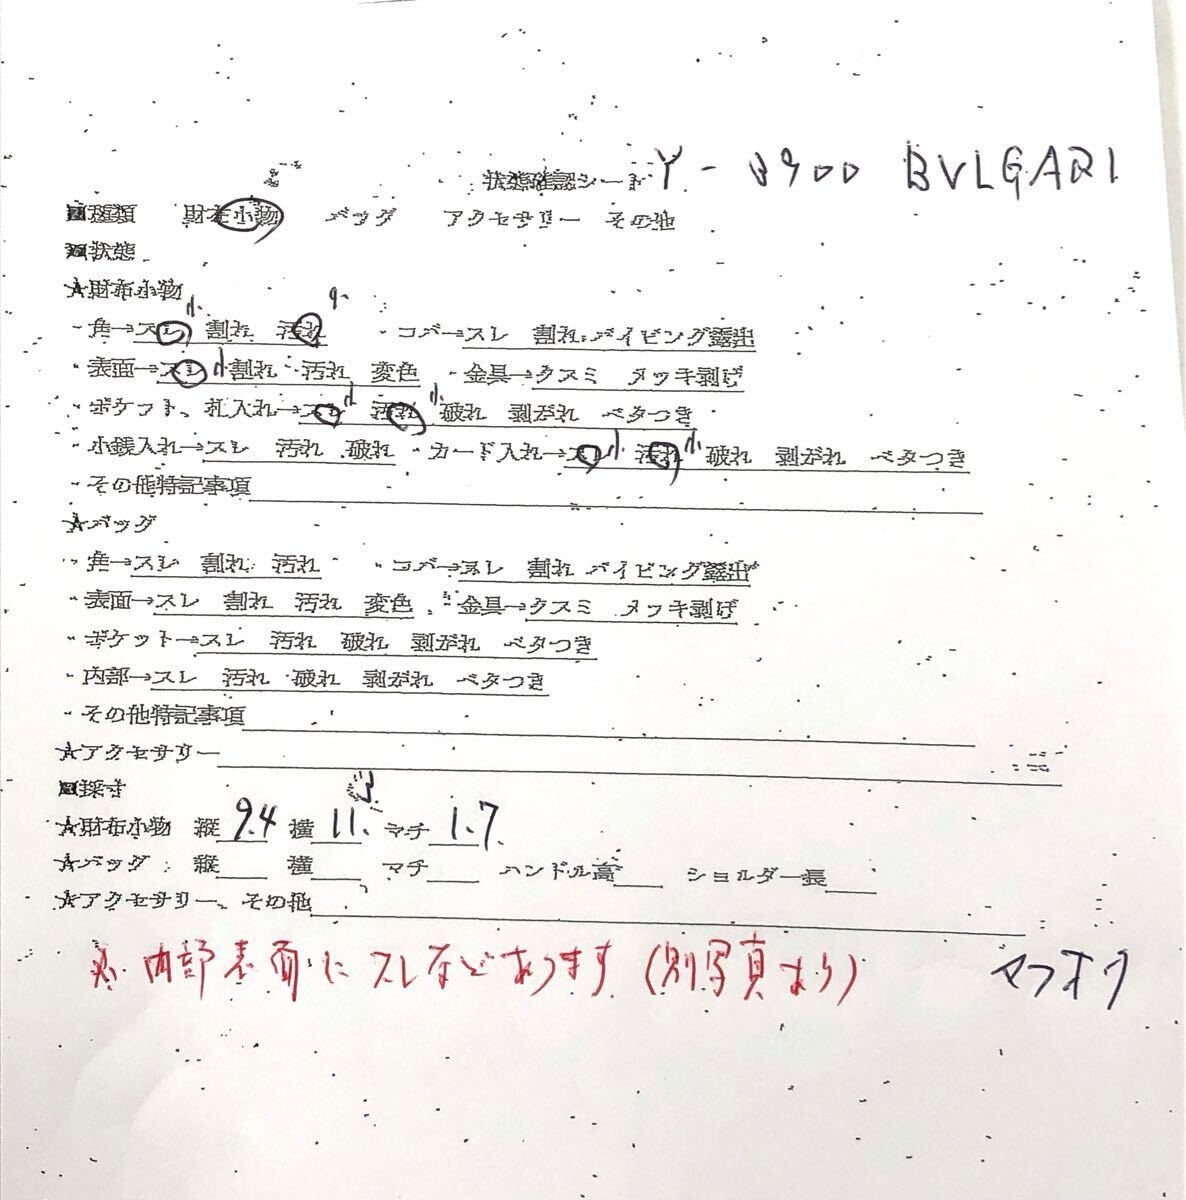 状態確認シート Y-8900 BVLGARI
■種類 財布小物 バッグ アクセサリー その他
■状態
★財布小物
・角→スレ 小 割れ 汚れ 小 ・コバ→スレ 割れ パイピング露出
・表面→スレ 小 割れ 汚れ 変色 ・金具→クスミ メッキ剥げ
・ポケット、札入れ→スレ 小 汚れ 小 破れ 剥がれ ベタつき
・小銭入れ→スレ 汚れ 破れ ・カード入れ→スレ 小 汚れ 小 破れ 剥がれ ベタつき
・その他特記事項
★バッグ
・角→スレ 割れ 汚れ ・コバ→スレ 割れ パイピング露出
・表面→スレ 割れ 汚れ 変色 ・金具→クスミ メッキ剥げ
・ポケット→スレ 汚れ 破れ 剥がれ ベタつき
・内部→スレ 汚れ 破れ 剥がれ ベタつき
・その他特記事項
★アクセサリー
■採寸
★財布小物 縦 9.4 横 11. マチ 1.7
★バッグ 縦 横 マチ ハンドル高 ショルダー長
★アクセサリー、その他
※内部表面にスレなどあります(別写真あり) ヤフオク